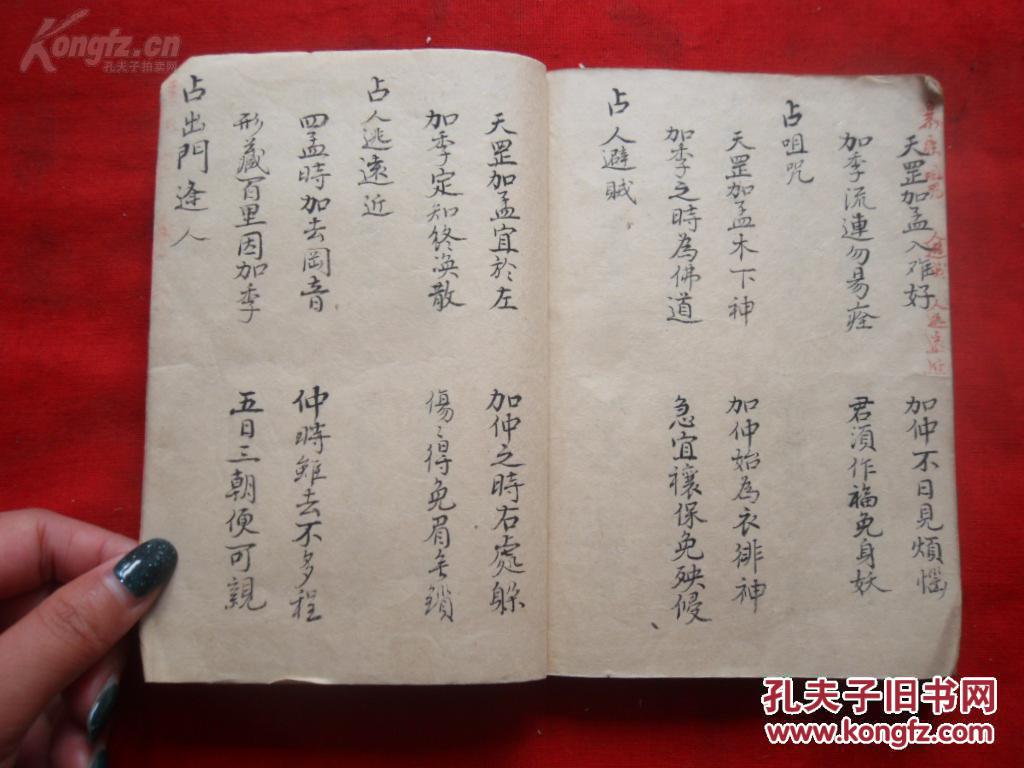 天罡加孟入难好
加仲不日見煩惱
加季流連勿易痊
君須作福免身妖
占咀咒
天罡加孟木下神
加仲始為衣徘神
加季之時為佛道
急宜禳保免殃侵
占人避賊
天罡加孟宜於左
加仲之時右處躲
加季定知終渙散
傷〻得免眉毛鎖
占人逃遠近
四孟時加去岡音
仲時雖去不多程
形藏百里因加季
五日三朝便可親
占出門逢人
Kongfz.cn
孔夫子拍卖网
孔夫子旧书网
www.kongfz.com